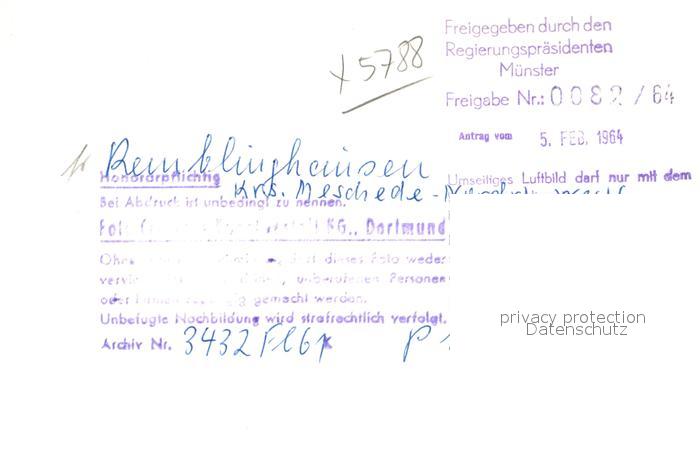 x 5788
Freigegeben durch den
Regierungspräsidenten
Münster
Freigabe Nr.: 0082/64
Antrag vom 5. FEB. 1964
Umseitiges Luftbild darf nur mit dem
Remblinghausen
Krs. Meschede -
Honorarpflichtig
Bei Abdruck ist unbedingt zu nennen:
Foto KG., Dortmund
Ohne dieses Foto weder
unberufenen Personen
oder gemacht werden.
Unbefugte Nachbildung wird strafrechtlich verfolgt.
Archiv Nr. 3432 Fl6x P
privacy protection
Datenschutz